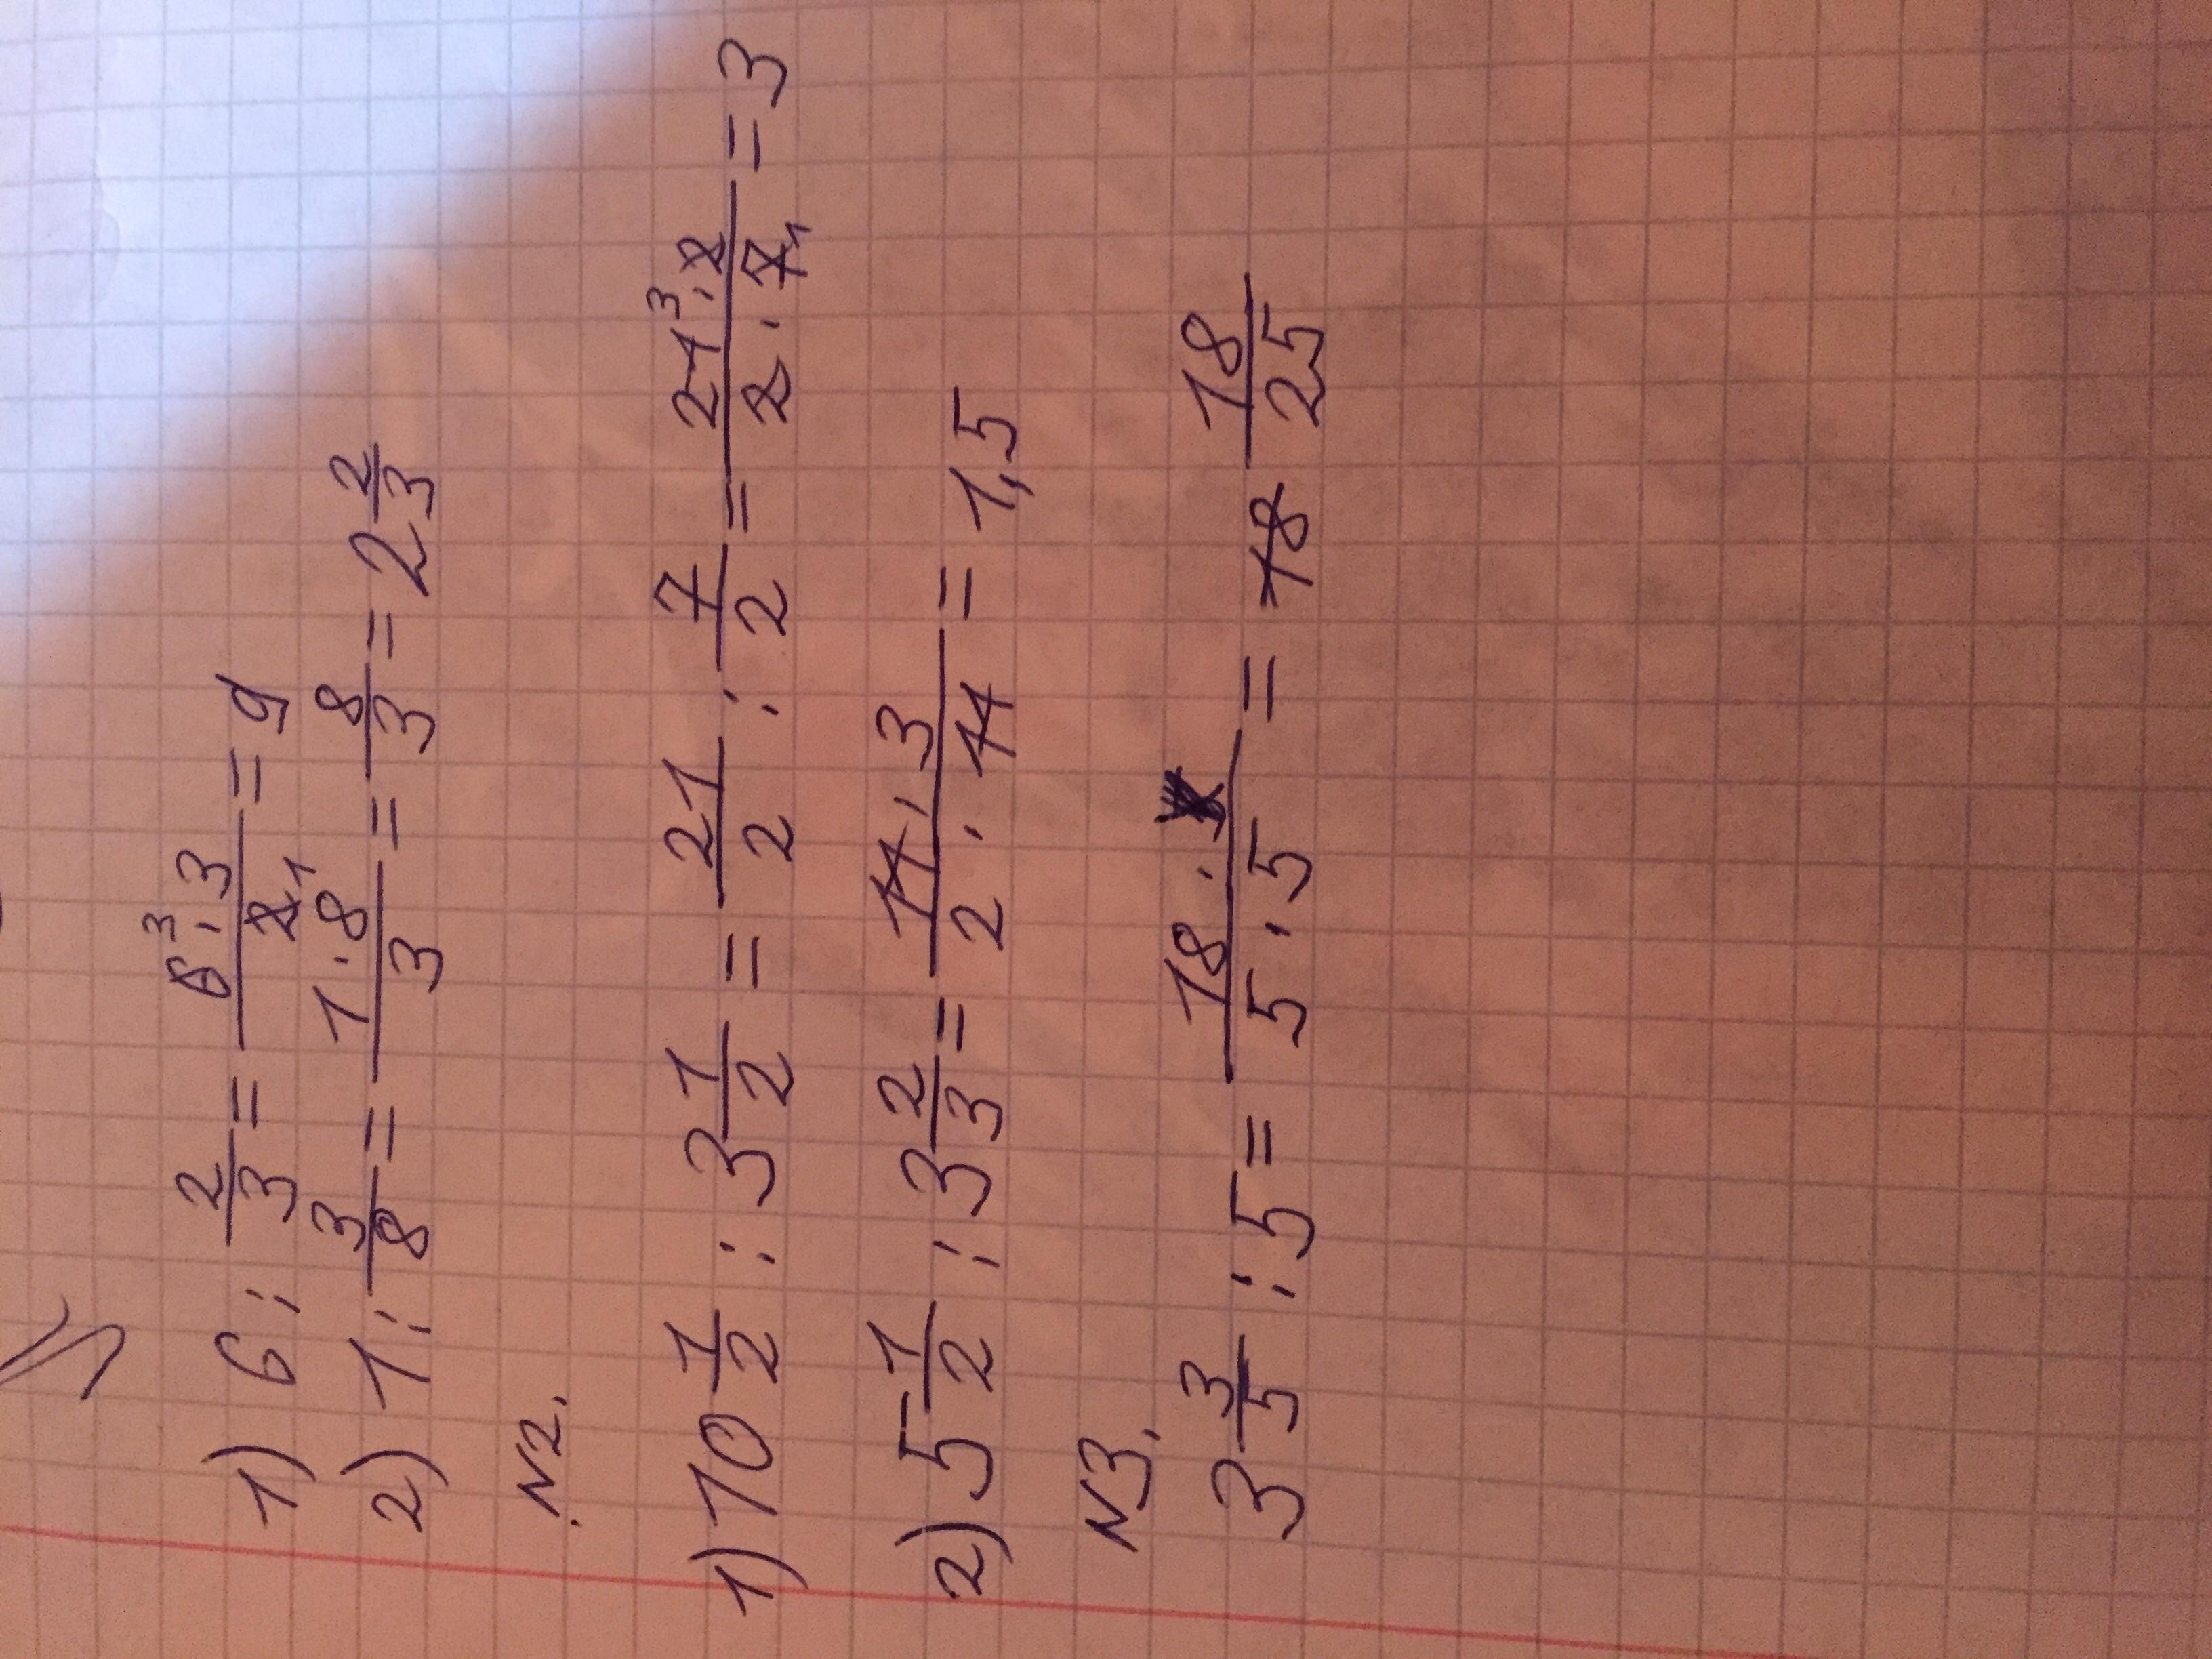 1) 6 : 2/3 = 6³·3/2₁ = 9
2) 1 : 3/8 = 1·8/3 = 8/3 = 2 2/3
N2.
1) 10 1/2 : 3 1/2 = 21/2 : 7/2 = 21³·2/2·7₁ = 3
2) 5 1/2 : 3 2/3 = 11·3/2·11 = 1,5
N3.
3 3/5 : 5 = 18·/5·5 = 18/25